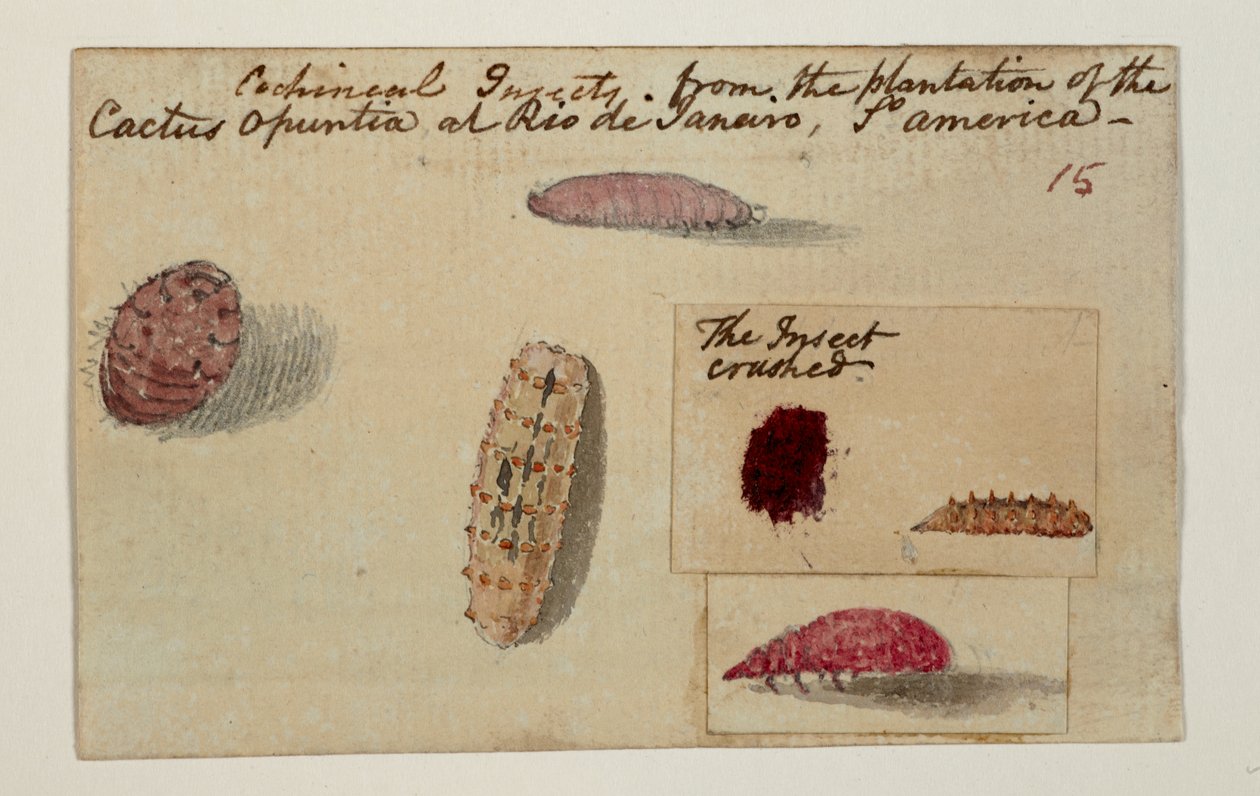 Cochineal Insects. from the plantation of the
Cactus Opuntia at Rio de Janeiro, So america -
15
The Insect
crushed